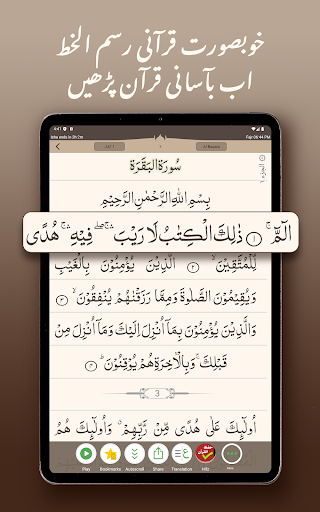 خوبصورت قرآنی رسم الخط
اب بآسانی قرآن پڑھیں
4:41
Isha ends in 3h 2m
Fajr 06:44 PM
Juz 1
Al Baqara
الجزء ١
سُورَةُ الْبَقَرَة
بِسْمِ اللّٰهِ الرَّحْمٰنِ الرَّحِيْمِ
الٓمّٓ ۚ ١ ذٰلِكَ الْكِتٰبُ لَا رَيْبَ ۛۚ ۖ فِيْهِ ۛۚ هُدًى
لِّلْمُتَّقِيْنَ ۙ ٢ الَّذِيْنَ يُؤْمِنُوْنَ بِالْغَيْبِ
وَيُقِيْمُوْنَ الصَّلٰوةَ وَمِمَّا رَزَقْنٰهُمْ يُنْفِقُوْنَ ۙ ٣
وَالَّذِيْنَ يُؤْمِنُوْنَ بِمَآ اُنْزِلَ اِلَيْكَ وَمَآ اُنْزِلَ مِنْ
قَبْلِكَ ۚ وَبِالْاٰخِرَةِ هُمْ يُوْقِنُوْنَ ؕ ٤
3
اُولٰٓئِكَ عَلٰى هُدًى مِّنْ رَّبِّهِمْ ۙ وَاُولٰٓئِكَ هُمُ
Play
Bookmarks
Autoscroll
Share
Translation
Hifz
More